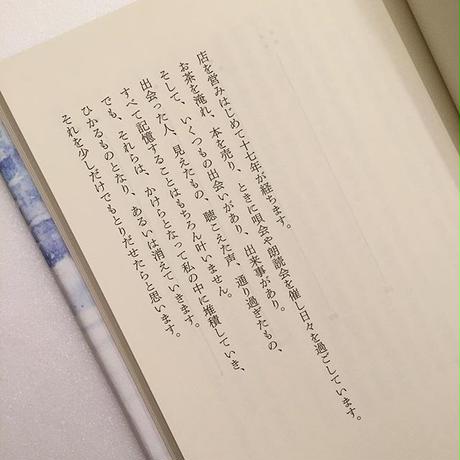 店を営みはじめて十七年が経ちます。
お茶を淹れ、本を売り、ときに唄会や朗読会を催し日々を過ごしています。
そして、いくつもの出会いがあり、出来事があり。
出会った人、見えたもの、聴こえた声、通り過ぎたもの、
すべて記憶することはもちろん叶いません。
でも、それらは、かけらとなって私の中に堆積していき、
ひかるものとなり、あるいは消えていきます。
それを少しだけでもとりだせたらと思います。